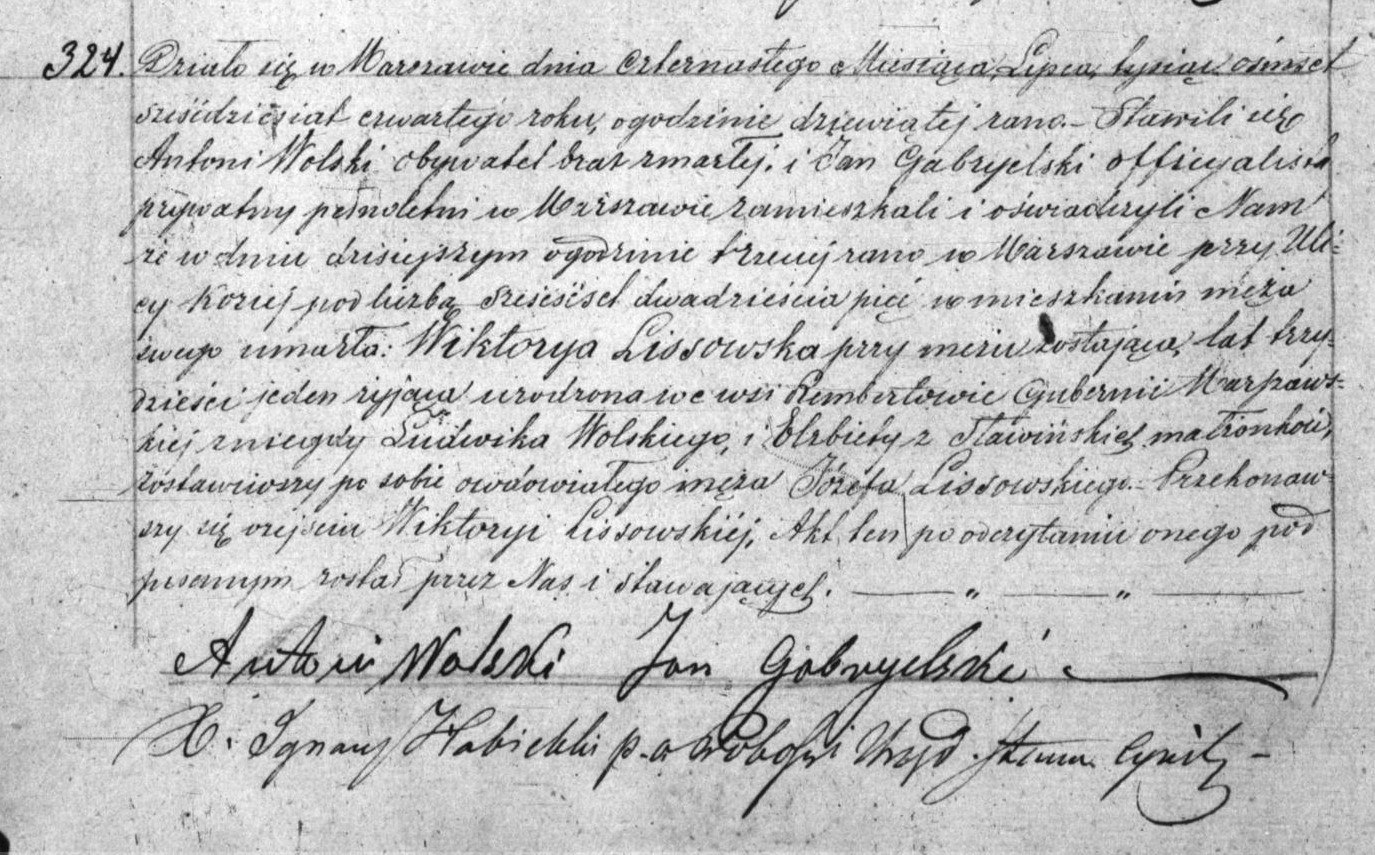 324. Działo się w Warszawie dnia czternastego Miesiąca Lipca, tysiąc ośmset
sześćdziesiąt czwartego roku, o godzinie dziewiątej rano.- Stawili się
Antoni Wolski obywatel brat zmarłej, i Jan Gabryelski officyalista
prywatny pełnoletni w Warszawie zamieszkali i oświadczyli Nam
że w dniu dzisiejszym o godzinie trzeciej rano w Warszawie przy Uli=
cy Koziej pod liczbą sześćset dwadzieścia pięć w mieszkaniu męża
swego umarła: Wiktorya Lissowska przy mężu zostająca, lat trzy=
dzieści jeden żyjąca urodzona we wsi Rembertowie Gubernii Warszaws=
kiej z niegdy Ludwika Wolskiego, i Elżbiety z Sławińskich małżonków,
zostawiwszy po sobie owdowiałego męża Józefa Lissowskiego.- Przekonaw=
szy się o zejściu Wiktoryi Lissowskiéj, Akt ten po odczytaniu onego pod
pisanym został przez Nas i stawających. — „ — „ —
Antoni Wolski Jan Gabryelski
X. Ignacy p. o Urzęd. Stanu Cywil